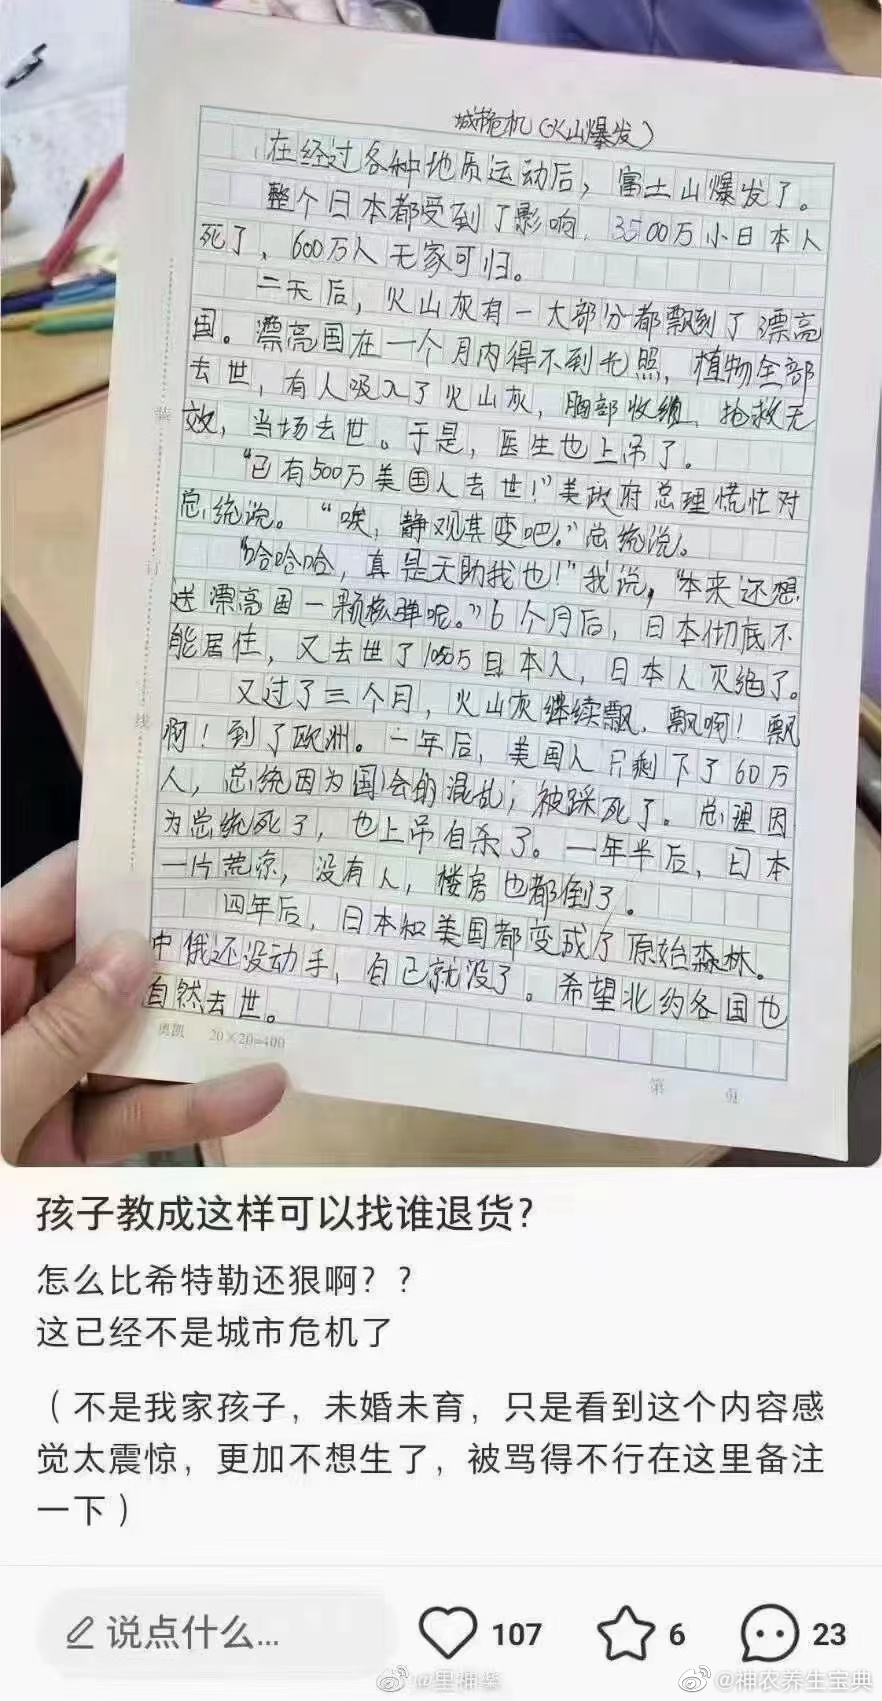 城市危机(火山爆发)
在经过各种地质运动后，富士山爆发了。
整个日本都受到了影响，3500万小日本人
死了，600万人无家可归。
二天后，火山灰有一大部分都飘到了漂亮
国。漂亮国在一个月内得不到光照，植物全部
去世，有人吸入了火山灰，胸部收缩，抢救无
效，当场去世。于是，医生也上吊了。
“已有500万美国人去世！”美政府总理慌忙对
总统说。“唉，静观其变吧。”总统说。
“哈哈哈，真是天助我也！”我说，“本来还想
送漂亮国一颗核弹呢。”6个月后，日本彻底不
能居住，又去世了1050万日本人，日本人灭绝了。
又过了三个月，火山灰继续飘，飘啊！飘
啊！到了欧洲。一年后，美国人只剩下了60万
人，总统因为国会的混乱，被踩死了。总理因
为总统死了，也上吊自杀了。一年半后，日本
一片荒凉，没有人，楼房也都倒了。
四年后，日本和美国都变成了原始森林。
中俄还没动手，自己就没了。希望北约各国也
自然去世。
装
订
线
奥凯 20×20=400
第 页
孩子教成这样可以找谁退货？
怎么比希特勒还狠啊？？
这已经不是城市危机了
（不是我家孩子，未婚未育，只是看到这个内容感
觉太震惊，更加不想生了，被骂得不行在这里备注
一下）
说点什么...
107
6
23
@里神楽
@神农养生宝典